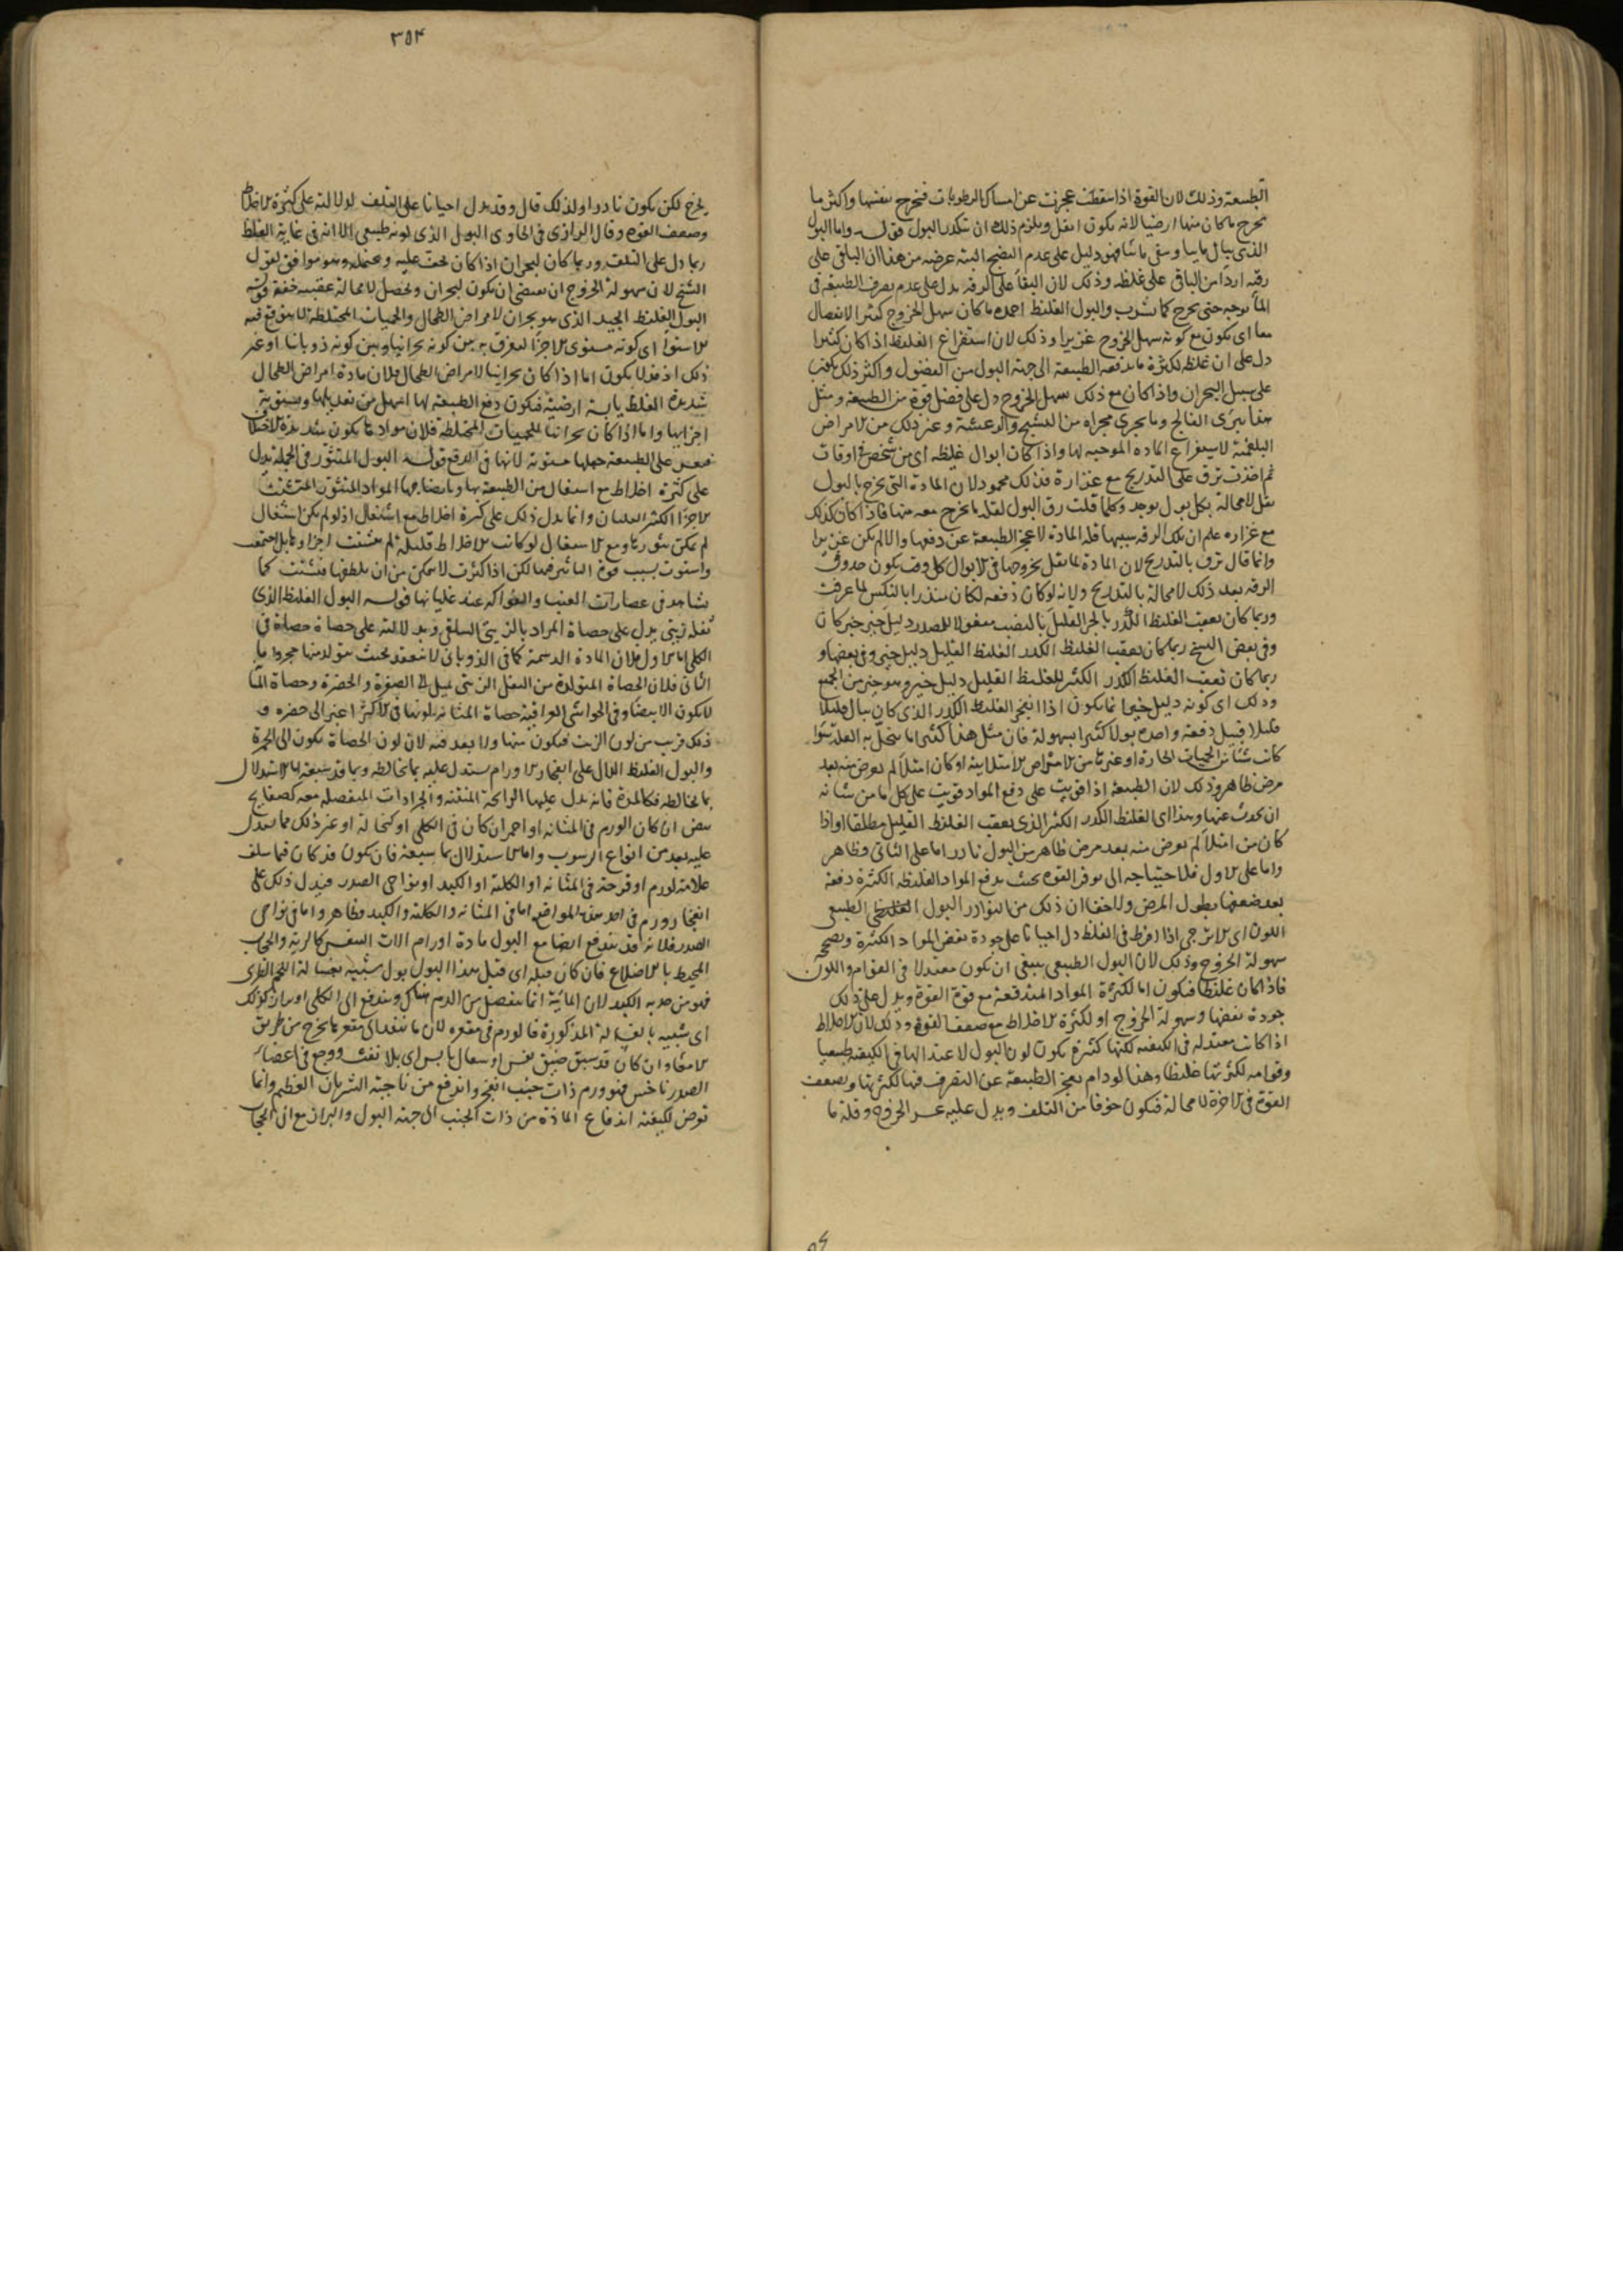 الطبيعة وذلك لان القوة اذا سقطت عجزت عن امساك الرطوبات فتخرج بنفسها واكثر ما
يخرج ما كان منها ارضيا لانه يكون اثقل ويلزم ذلك ان يتكدر البول قوله واما البول
الذي يبال مائيا ويبقى مائيا فهو دليل على عدم النضج البتة غرضه من هذا ان الباقي على
رقته اردأ من الباقي على غلظه وذلك لان البقا على الرقة يدل على عدم تصرف الطبيعة في
المأ بوجه حتى يخرج كما شرب والبول الغليظ احمده ما كان سهل الخروج كثير الانفصال
معا اى يكون مع كونه سهل الخروج غزيرا وذلك لان استفراغ الغليظ اذا كان كثيرا
دل على ان غلظه لكثرة ما يدفعه الطبيعة الى جهة البول من الفضول واكثر ذلك
على سبيل البحران واذا كان مع ذلك سهل الخروج دل على فضل قوة من الطبيعة ومثل
هذا يبرى الفالج وما يجرى مجراه من التشنج والرعشة وغير ذلك من الامراض
البلغمية لاستفراغ المادة الموجبة لها واذا كان ابوال غليظة اى من شخص في اوقات
ثم اخذت ترق على التدريج مع غزارة فذلك محمود لان المادة التي يخرج بالبول
تقل لا محالة بكل بول يوجد وكلما قلت رق البول لقلة ما يخرج معه منها فاذا كان كذلك
مع غزارة علم ان تلك الرقة سببها قلة المادة لا عجز الطبيعة عن دفعها والا لم يكن غزيرا
وانما قال ترق بالتدريج لان المادة انما تقل بخروجها في الابوال كل وقت يكون حدوث
الرقة بعد ذلك لا محالة بالتدريج ولانه لو كان دفعة لكان منذرا بالنكس لما عرفت
وربما كان يعقب الغليظ الكدر بالجر القليل بالنصب مفعولا للمصدر دليل خير خبر كان
وفي بعض النسخ ربما كان يعقب الغليظ الكدر الغليظ القليل دليل خير وفي بعضها و
ربما كان تعقب الغليظ الكدر الكثير للغليظ القليل دليل خير وهو خير من الجميع
وذلك اى كونه دليل خير انما يكون اذا انفجر الغليظ الكدر الذي كان يبال قليلا
قليلا قبيل دفعة واحدة بولا كثيرا بسهولة فان مثل هذا كثيرا ما ينحل به العلة سوا
كانت شيئا من الحميات الحارة او غيرها من الامراض الامتلائية او كان امتلأ لم يعرض منه بعد
مرض ظاهر وذلك لان الطبيعة اذا قويت على دفع المواد قويت على كل ما من شانه
ان يحدث عنها وهذا اى الغليظ الكدر الكثير الذي يعقب الغليظ القليل مطلقا او اذا
كان من امتلأ لم يعرض منه بعد مرض ظاهر من البول نادر اما على الثاني فظاهر
واما على الاول فلاحتياجه الى توفر القوة بحيث يدفع المواد الغليظة الكثيرة دفعة
بعد ضعفها بطول المرض ولا خفا ان ذلك من النوادر البول الطبيعي
اللون اى الاترجي اذا افرط في الغلظ دل احيانا على جودة نفض المواد الكثيرة ويصحبه
سهولة الخروج وذلك لان البول الطبيعي ينبغي ان يكون معتدلا في القوام واللون
فاذا كان غليظا فيكون اما لكثرة المواد المندفعة مع قوة القوة ويدل على ذلك
جودة نفضها وسهولة الخروج او لكثرة الاخلاط مع ضعف القوة وذلك لان الاخلاط
اذا كانت معتدلة في الكيفية لكنها كثيرة يكون لون البول لاعتدالها في الكيفية طبيعيا
وقوامه لكثرتها غليظا وهذا لو دام يعجز الطبيعة عن التصرف فيها لكثرتها ويضعف
القوة في الاخرة لا محالة فيكون خوفا من التلف ويدل عليه عسر الخروج وقلة ما
٣٥٤
يخرج لكن يكون نادرا ولذلك قال وقد يدل احيانا على التلف لدلالته على كثرة الاخلاط
وضعف القوة وقال الرازي في الحاوي البول الذي لونه طبيعي الا انه في غاية الغلظ
ربما دل على التلف وربما كان لبحران اذا كان يخف عليه وهو موافق لقول
الشيخ لان سهولة الخروج ان يقتضي ان يكون لبحران ويحصل لا محالة عقيبه خفة قوله
البول الغليظ الجيد الذي هو بحران لامراض الطحال والحميات المختلطة لا يتوقع فيه
الاستوا اى كونه مستوى الاجزأ ليفرق به بين كونه بحرانيا وبين كونه ذوبانيا او غير
ذلك اذ قد لا يكون اما اذا كان بحرانيا لامراض الطحال فلان مادة امراض الطحال
شديدة الغلظ يابسة ارضية فيكون دفع الطبيعة لها اسهل من تعديلها وتسوية
اجزائها واما اذا كان بحرانيا للحميات المختلطة فلان موادها يكون شديدة الاختلاف
فيعسر على الطبيعة جعلها مستوية لانها في الدفع قوله البول المتثور في الجملة يدل
على كثرة اخلاط مع اشتغال من الطبيعة بها وبانضاجها المواد المتثورة المتشتت
الاجزأ الكثير الغليان وانما يدل ذلك على كثرة اخلاط مع اشتغال اذ لو لم يكن اشتغال
لم يمكن تثورها ومع الاشتغال لو كانت الاخلاط قليلة لم يتشتت اجزاؤها بل اجتمعت
واستوت بسبب قوة التاثير فيها لكن اذا كثرت لا يمكن من ان يلطفها فتشتت كما
يشاهد في عصارات العنب والفواكه عند غليانها قوله البول الغليظ الذي
ثفله زيتي يدل على حصاة المراد بالزيتي السلقي ويد لالته على حصاة حصاة في
الكلى اما الاول فلان المادة الدسمة كما في الذوباني لا ينعقد بحيث يتولد منها حجر واما
الثاني فلان الحصاة المتولدة من الثفل الزيتي تميل الى الصفرة والخضرة وحصاة المثا
لا يكون الا بيضا وفي الحواشي العراقية حصاة المثانة لونها في الاكثر اغبر الى خضرة و
ذلك قريب من لون الزيت فيكون منها ولا بعد فيه لان لون الحصاة يكون الى الحمرة
والبول الغليظ الدال على انفجار الاورام يستدل عليه بما يخالطه وبما قد يسبقه اما الاستدلال
بما يخالطه فكالمدة فانه يدل عليها الرائحة المنتنة والجرادات المنفصلة معه كصفايح
بيض ان كان الورم في المثانة او احمر ان كان في الكلى او كنخالة او غير ذلك مما يستدل
عليه بعد من انواع الرسوب واما الاستدلال بما سبقه فان يكون قد كان فيما سلف
علامة لورم او قرحة في المثانة او الكلية او الكبد او نواحي الصدر فيدل ذلك على
انفجار ورم في احد هذه المواضع اما في المثانة والكلية والكبد فظاهر واما في نواحي
الصدر فلانه قد يندفع ايضا مع البول مادة اورام الات النفس كالرية والحجاب
المحيط بالاضلاع فان كان قبله اى قبل هذا البول بول شبيه بغسالة اللحم الطرى
فهو من حدبة الكبد لان المائية انما ينفصل من الدم هناك ويندفع الى الكلى او براز كذلك
اى شبيه بالغسالة المذكورة فالورم في مقعره لان ما ينفذ الى مقعرها يخرج من طريق
الامعا وان كان قد سبق ضيق نفس او سعال يابس اى بلا نفث ووجع في اعضائه
الصدر ناخس فهو ورم ذات جنب انفجر واندفع من ناحية الشريان العظيم وانما
تعرض لكيفية اندفاع المادة من ذات الجنب الى جهة البول والبراز مع ان الحجاب